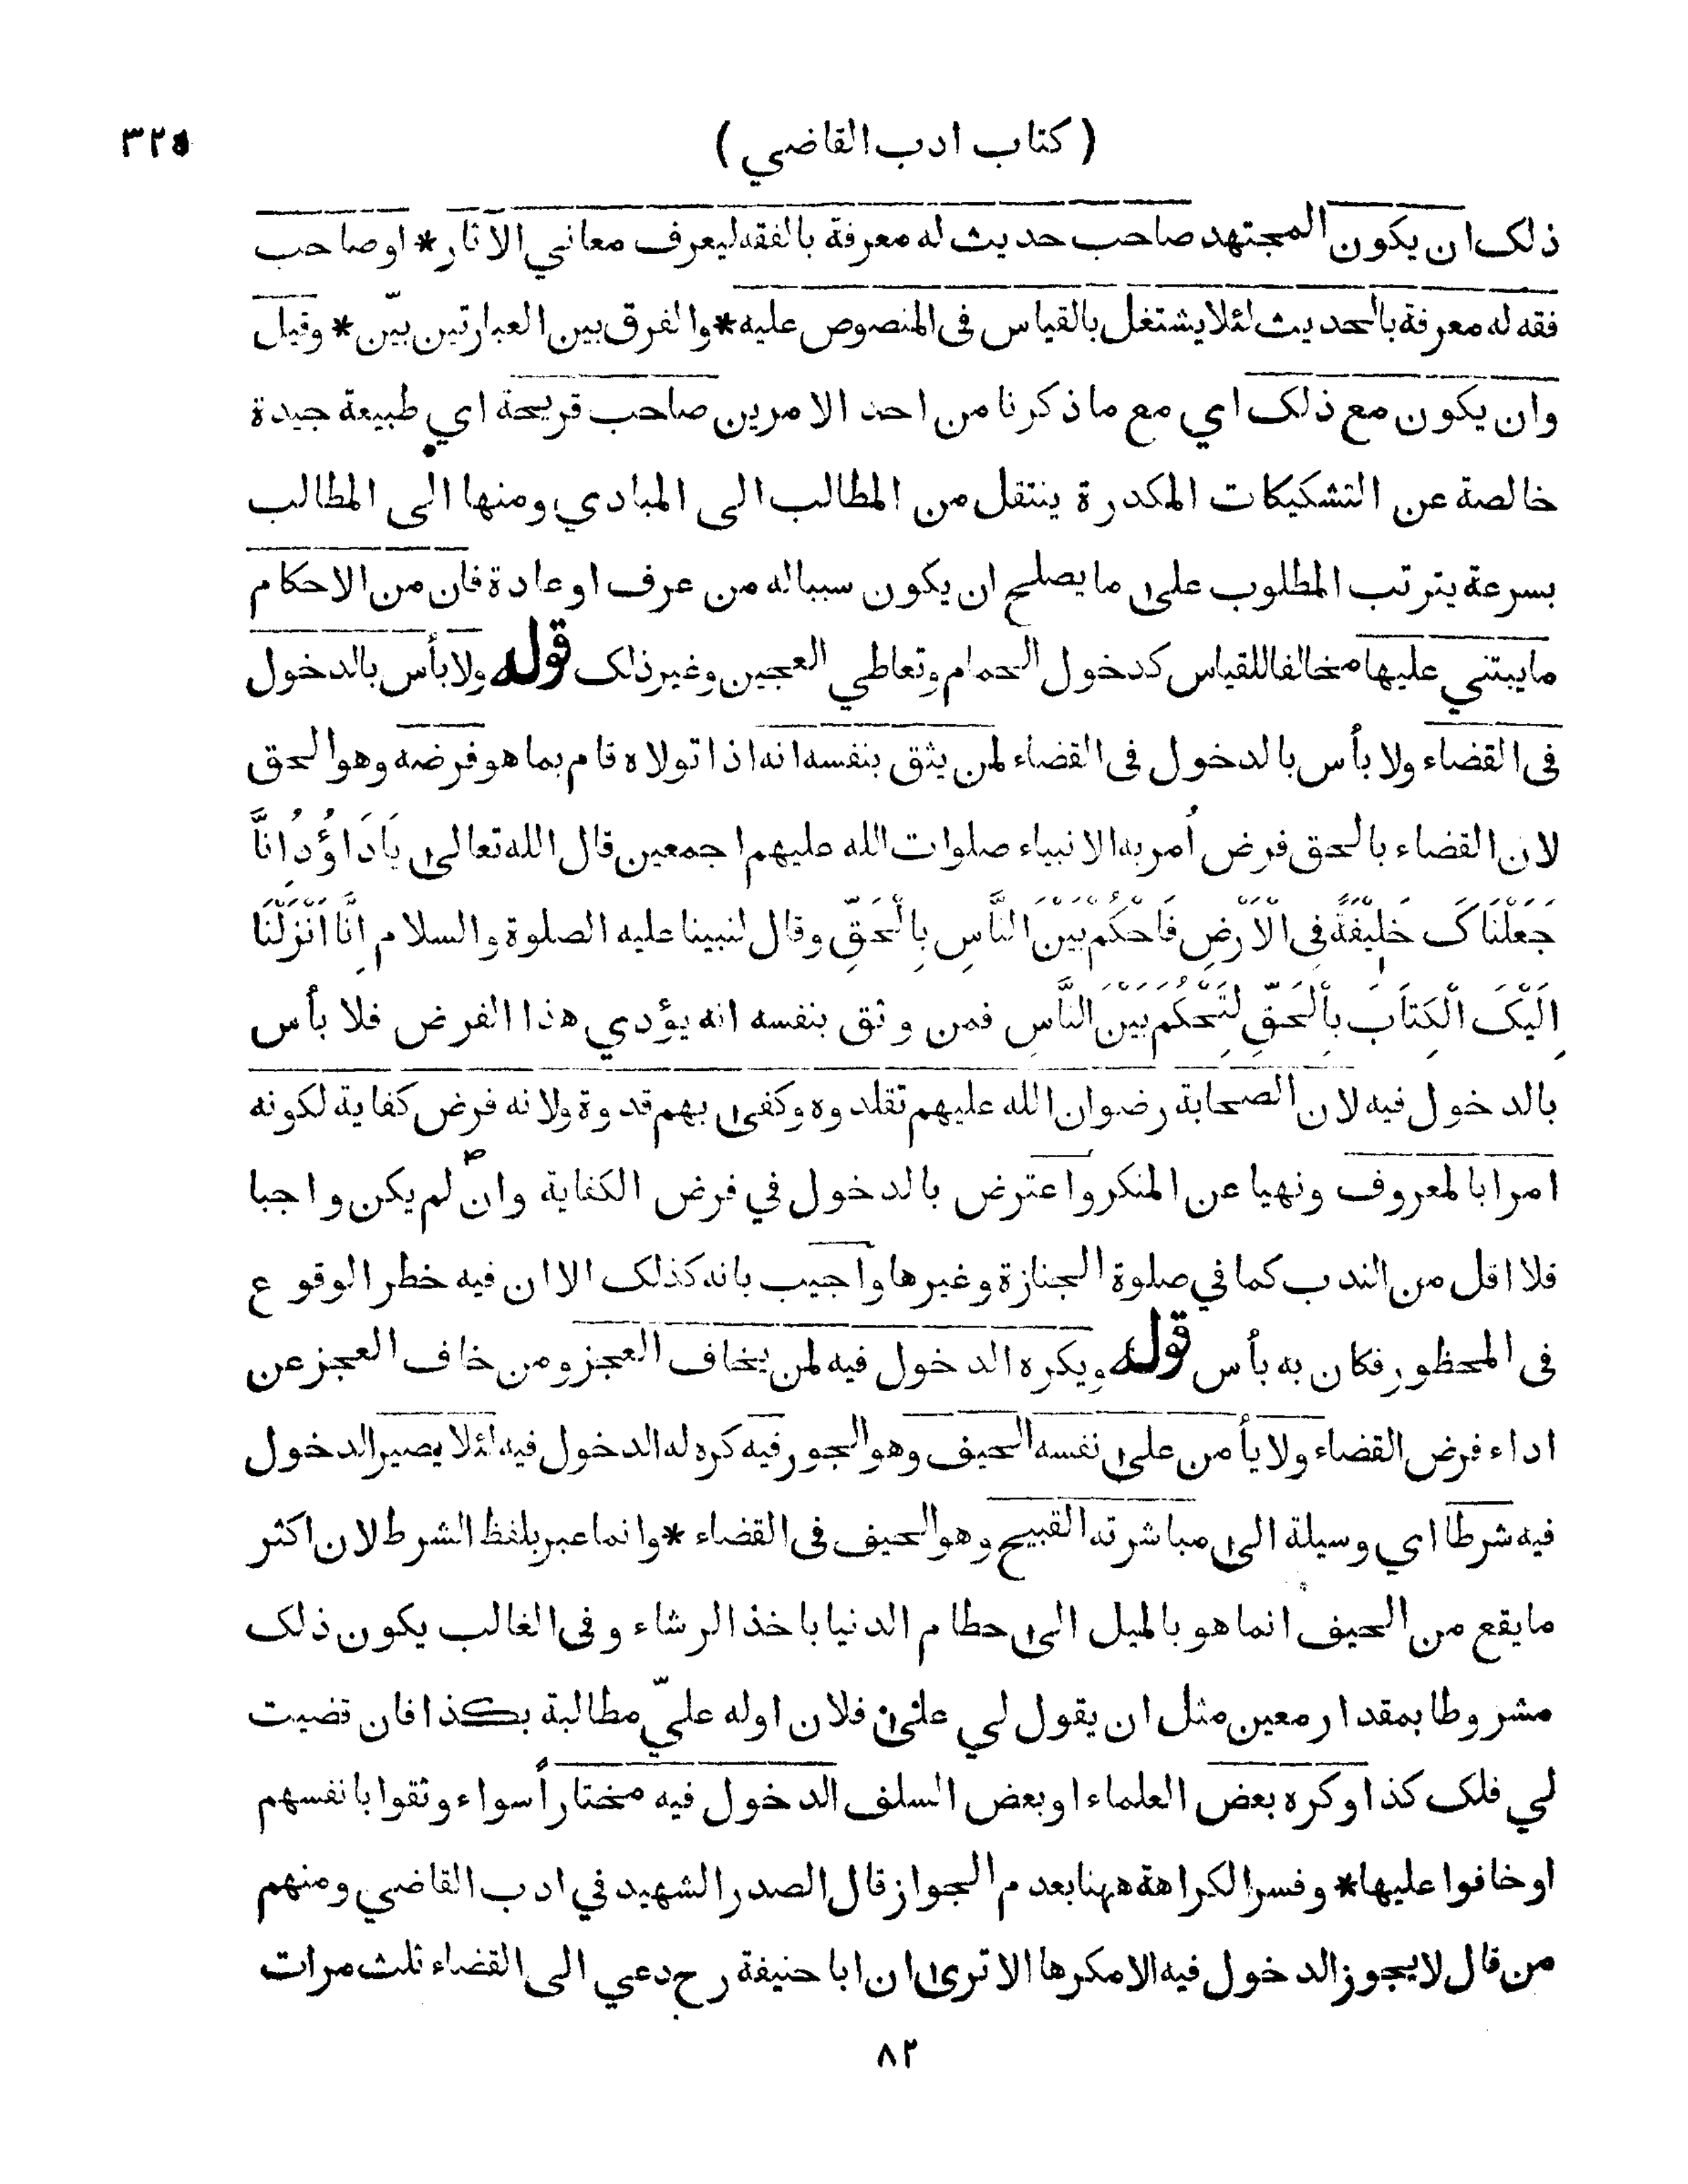 ( كتاب ادب القاضي ) ٣٢٥
ذلك ان يكون المجتهد صاحب حديث له معرفة بالفقه ليعرف معاني الاثار * او صاحب
فقه له معرفة بالحديث لئلا يشتغل بالقياس في المنصوص عليه * والفرق بين العبارتين بيّن * وقيل
وان يكون مع ذلك اي مع ما ذكرنا من احد الامرين صاحب قريحة اي طبيعة جيدة
خالصة عن التشكيكات المكدرة ينتقل من المطالب الى المبادي ومنها الى المطالب
بسرعة يترتب المطلوب على ما يصلح ان يكون سببا له من عرف او عادة فان من الاحكام
ما يبتني عليها مخالفا للقياس كدخول الحمام وتعاطي العجين وغير ذلك قوله ولا بأس بالدخول
في القضاء ولا بأس بالدخول في القضاء لمن يثق بنفسه انه اذا تولاه قام بما هو فرضه وهو الحق
لان القضاء بالحق فرض أمر به الانبياء صلوات الله عليهم اجمعين قال الله تعالى يَادَاؤُدُ اِنَّا
جَعَلْنَاكَ خَلِيْفَةً فِي الْاَرْضِ فَاحْكُمْ بَيْنَ النَّاسِ بِالْحَقِّ وقال لنبينا عليه الصلوة والسلام اِنَّا اَنْزَلْنَا
اِلَيْكَ الْكِتَابَ بِالْحَقِّ لِتَحْكُمَ بَيْنَ النَّاسِ فمن وثق بنفسه انه يؤدي هذا الفرض فلا بأس
بالدخول فيه لان الصحابة رضوان الله عليهم تقلدوه وكفى بهم قدوة ولانه فرض كفاية لكونه
امرا بالمعروف ونهيا عن المنكر واعترض بالدخول في فرض الكفاية وان لم يكن واجبا
فلا اقل من الندب كما في صلوة الجنازة وغيرها واجيب بانه كذلك الا ان فيه خطر الوقوع
في المحظور فكان به بأس قوله ويكره الدخول فيه لمن يخاف العجز ومن خاف العجز عن
اداء فرض القضاء ولا يأمن على نفسه الحيف وهو الجور فيه كره له الدخول فيه لئلا يصير الدخول
فيه شرطا اي وسيلة الى مباشرته القبيح وهو الحيف في القضاء * وانما عبر بلفظ الشرط لان اكثر
ما يقع من الحيف انما هو بالميل الى حطام الدنيا باخذ الرشاء وفي الغالب يكون ذلك
مشروطا بمقدار معين مثل ان يقول لي على فلان اوله عليّ مطالبة بكذا فان قضيت
لي فلك كذا وكره بعض العلماء او بعض السلف الدخول فيه مختاراً سواء وثقوا بانفسهم
او خافوا عليها * وفسر الكراهة ههنا بعدم الجواز قال الصدر الشهيد في ادب القاضي ومنهم
من قال لا يجوز الدخول فيه الا مكرها الا ترى ان ابا حنيفة رح دعي الى القضاء ثلث مرات
٨٢